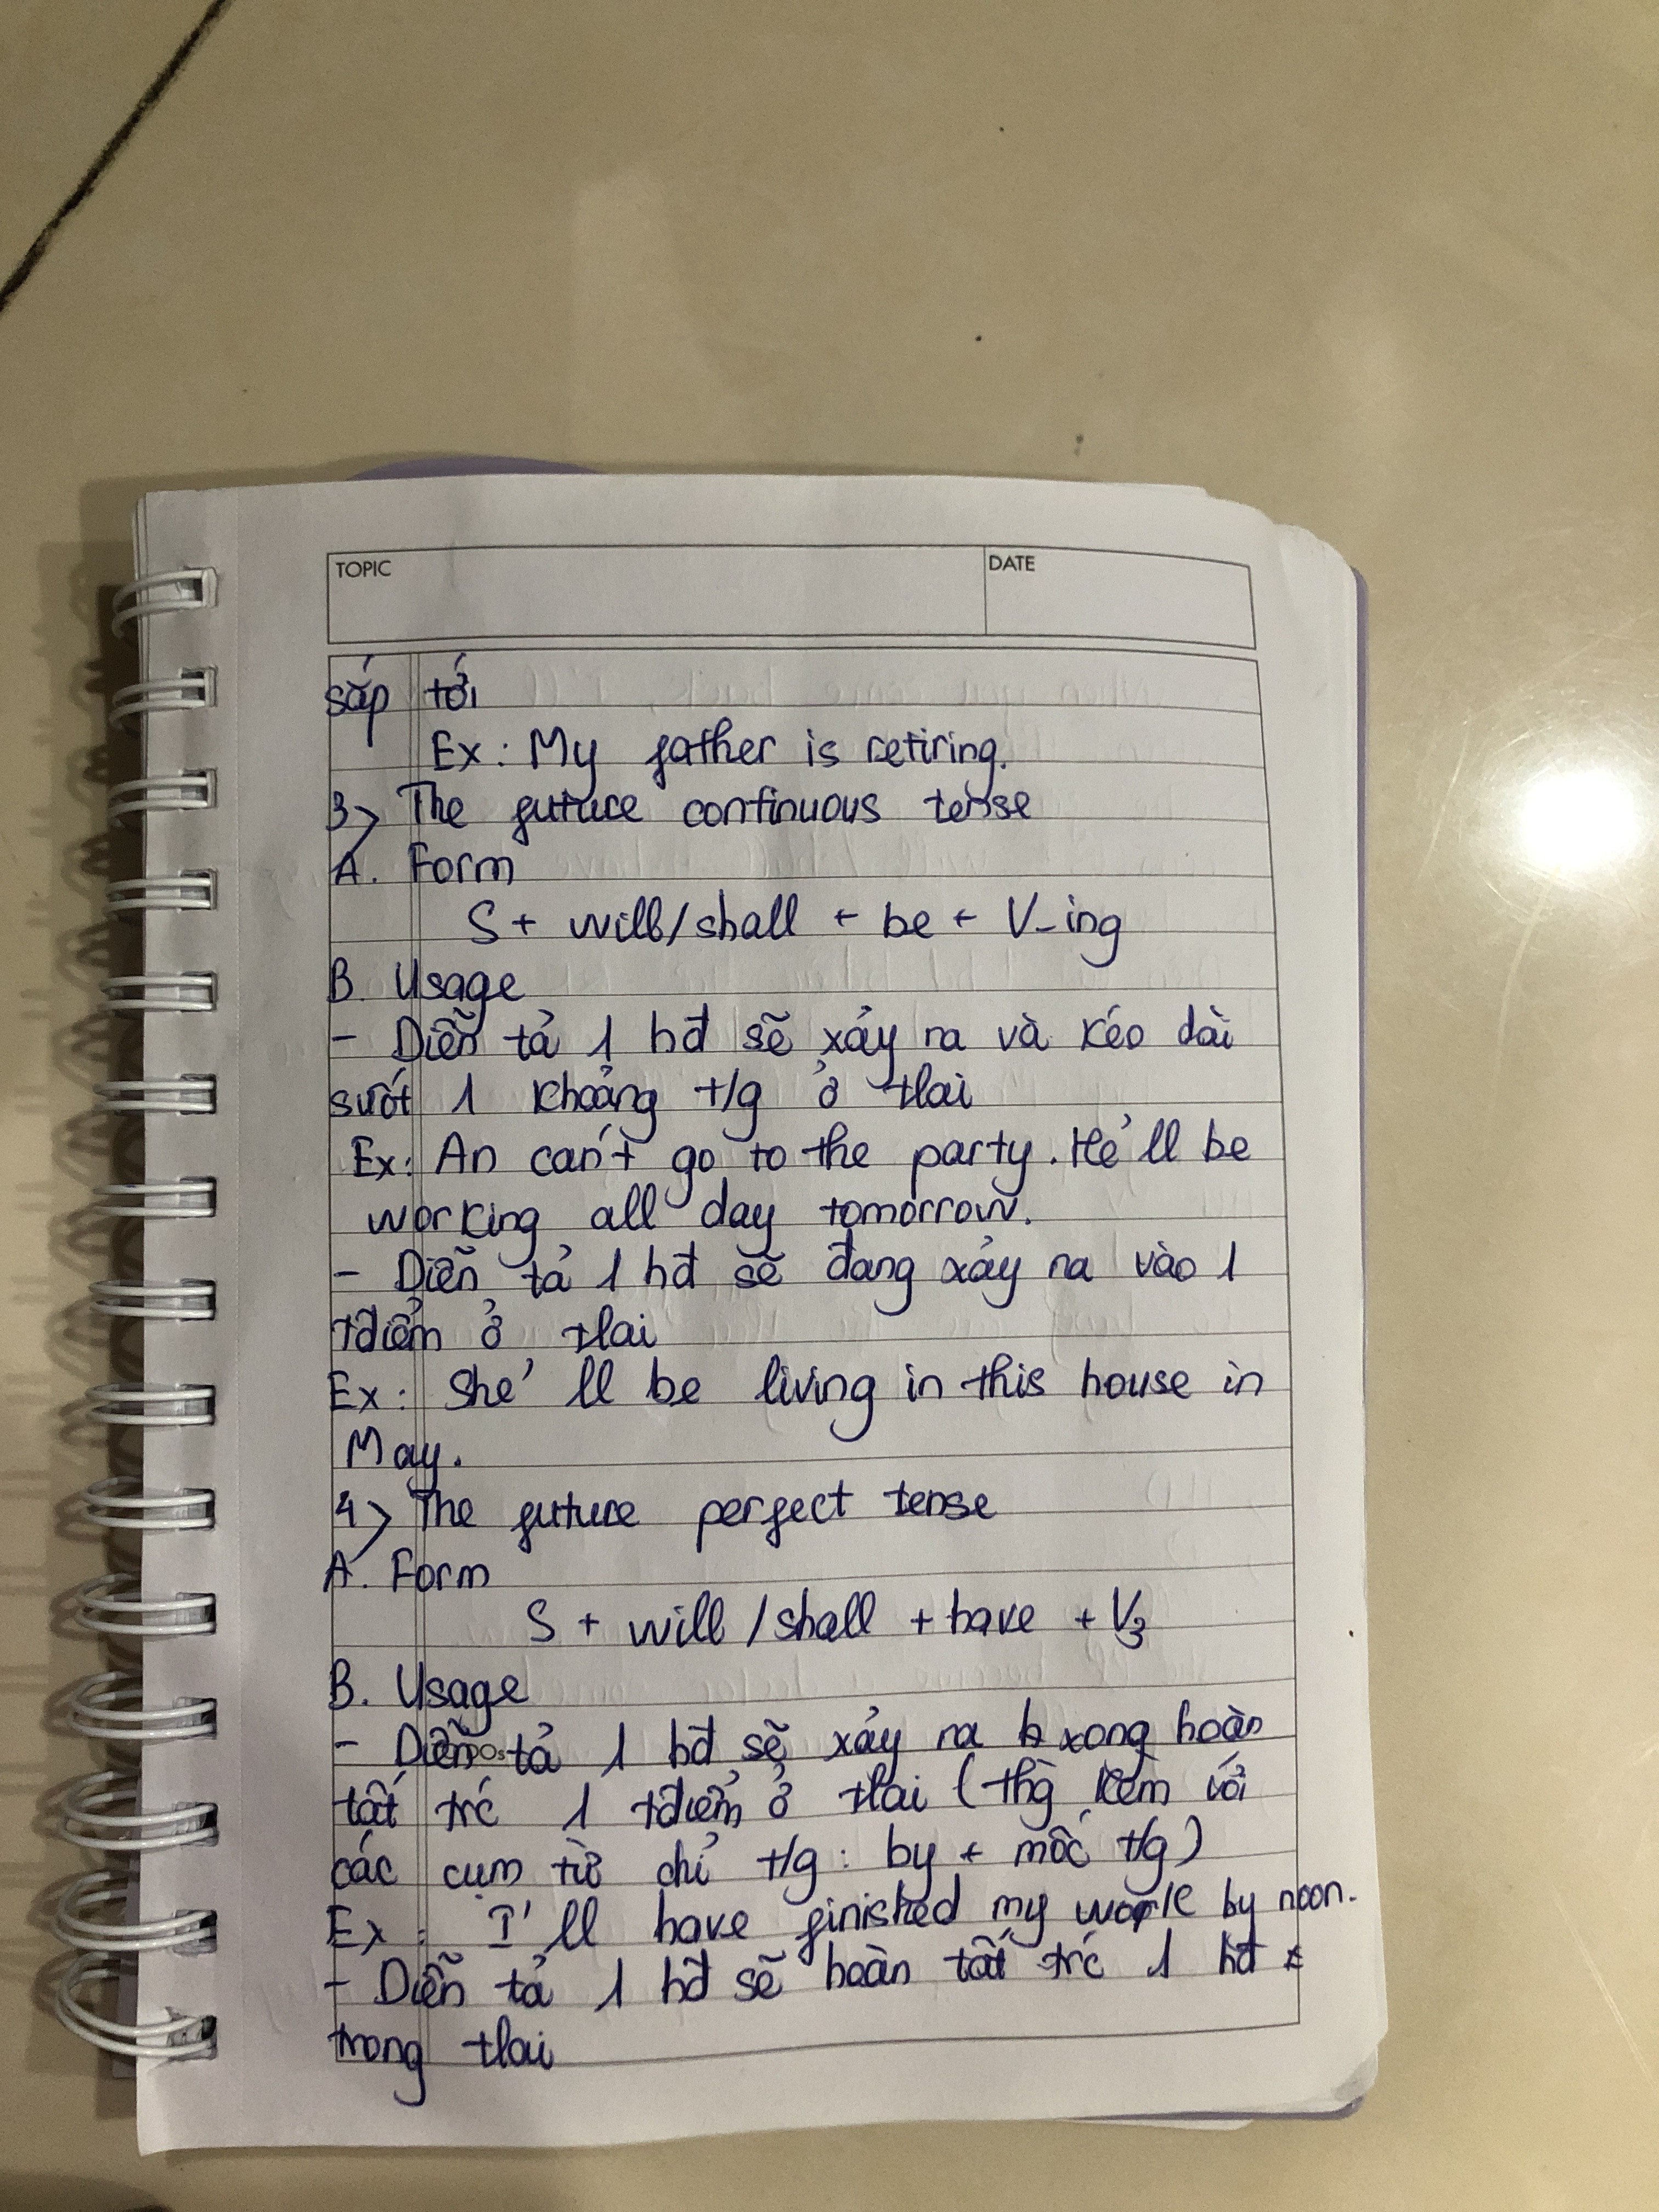 TOPIC DATE
sắp tới
Ex: My father is retiring.
3> The future continuous tense
A. Form
S + will/shall + be + V-ing
B. Usage
- Diễn tả 1 hđ sẽ xảy ra và kéo dài
suốt 1 khoảng t/g ở tlai
Ex: An can't go to the party. He'll be
working all day tomorrow.
- Diễn tả 1 hđ sẽ đang xảy ra vào 1
tđiểm ở tlai
Ex: She'll be living in this house in
May.
4> The future perfect tense
A. Form
S + will/shall + have + V3
B. Usage
- Diễn tả 1 hđ sẽ xảy ra xong hoàn
tất trc 1 tđiểm ở tlai (thg kèm với
các cụm từ chỉ t/g: by + mốc t/g)
Ex: I'll have finished my work by noon.
- Diễn tả 1 hđ sẽ hoàn tất trc 1 hđ
trong tlai